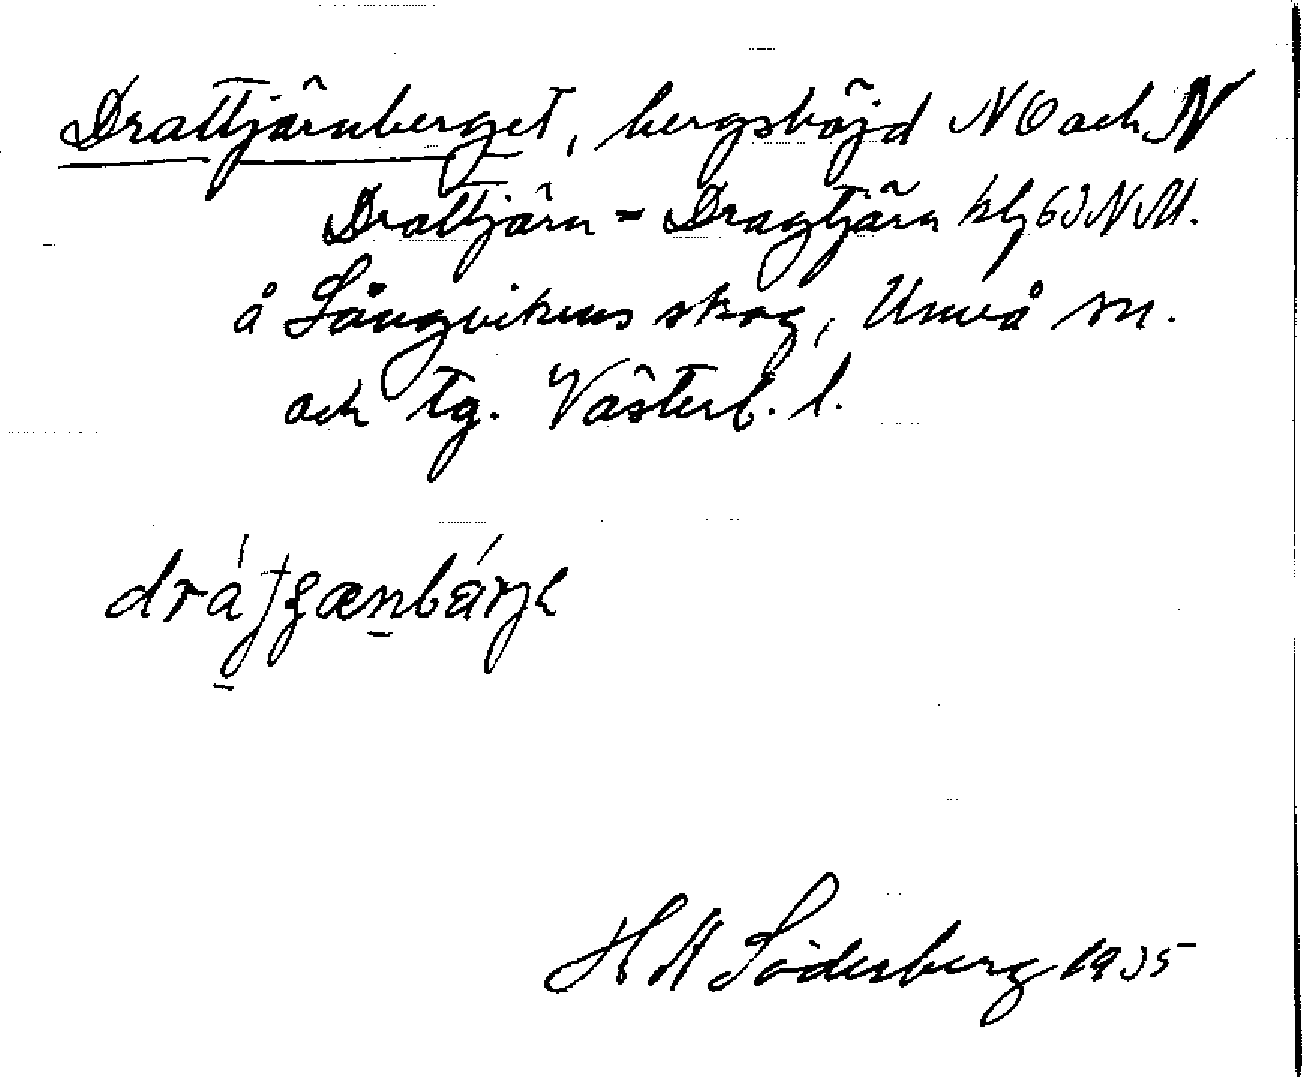 Drattjärnberget, bergshöjd NO och N
Drattjärn - Dragtjärn kbl 63 NM.
å Långvikens skog, Umeå sn.
och tg. Västerb. l.
H A Söderberg 1935